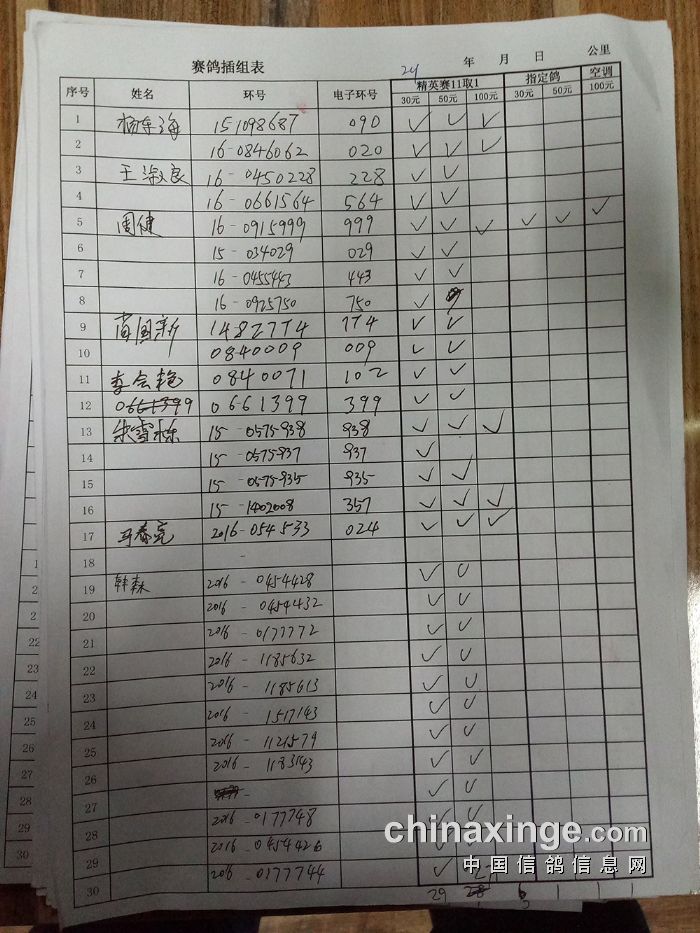 赛鸽插组表 24 年 月 日 公里
序号 姓名 环号 电子环号 精英赛11取1 指定鸽 空调
30元 50元 100元 30元 50元 100元
1 杨东海 151098687 090 ✓ ✓ ✓
2 16-0846062 020 ✓ ✓ ✓
3 王淑良 16-0450228 228 ✓ ✓
4 16-0661564 564 ✓ ✓
5 周健 16-0915999 999 ✓ ✓ ✓ ✓ ✓ ✓
6 15-034029 029 ✓ ✓
7 16-0455443 443 ✓ ✓
8 16-0925750 750 ✓
9 肖国新 1482774 774 ✓ ✓
10 0840009 009 ✓ ✓
11 李会艳 0840071 102 ✓ ✓
12 0661399 0661399 399 ✓ ✓
13 朱雪栋 15-0575938 938 ✓ ✓ ✓
14 15-0575937 937 ✓
15 15-0575935 935 ✓ ✓
16 15-1402008 357 ✓ ✓ ✓
17 马春亮 2016-054533 024 ✓ ✓ ✓
18 -
19 韩森 2016-0454428 ✓ ✓
20 2016-0454432 ✓ ✓
21 2016-0177772 ✓ ✓
22 2016-1185632 ✓ ✓
23 2016-1185613 ✓ ✓
24 2016-1517143 ✓ ✓
25 2016-1121579 ✓ ✓
26 2016-1183143 ✓ ✓
27 - ✓ ✓
28 2016-0177748 ✓ ✓
29 2016-0454426
30 2016-0177744 ✓
29 28 6 1 1 1
chinaxinge.com
中国信鸽信息网